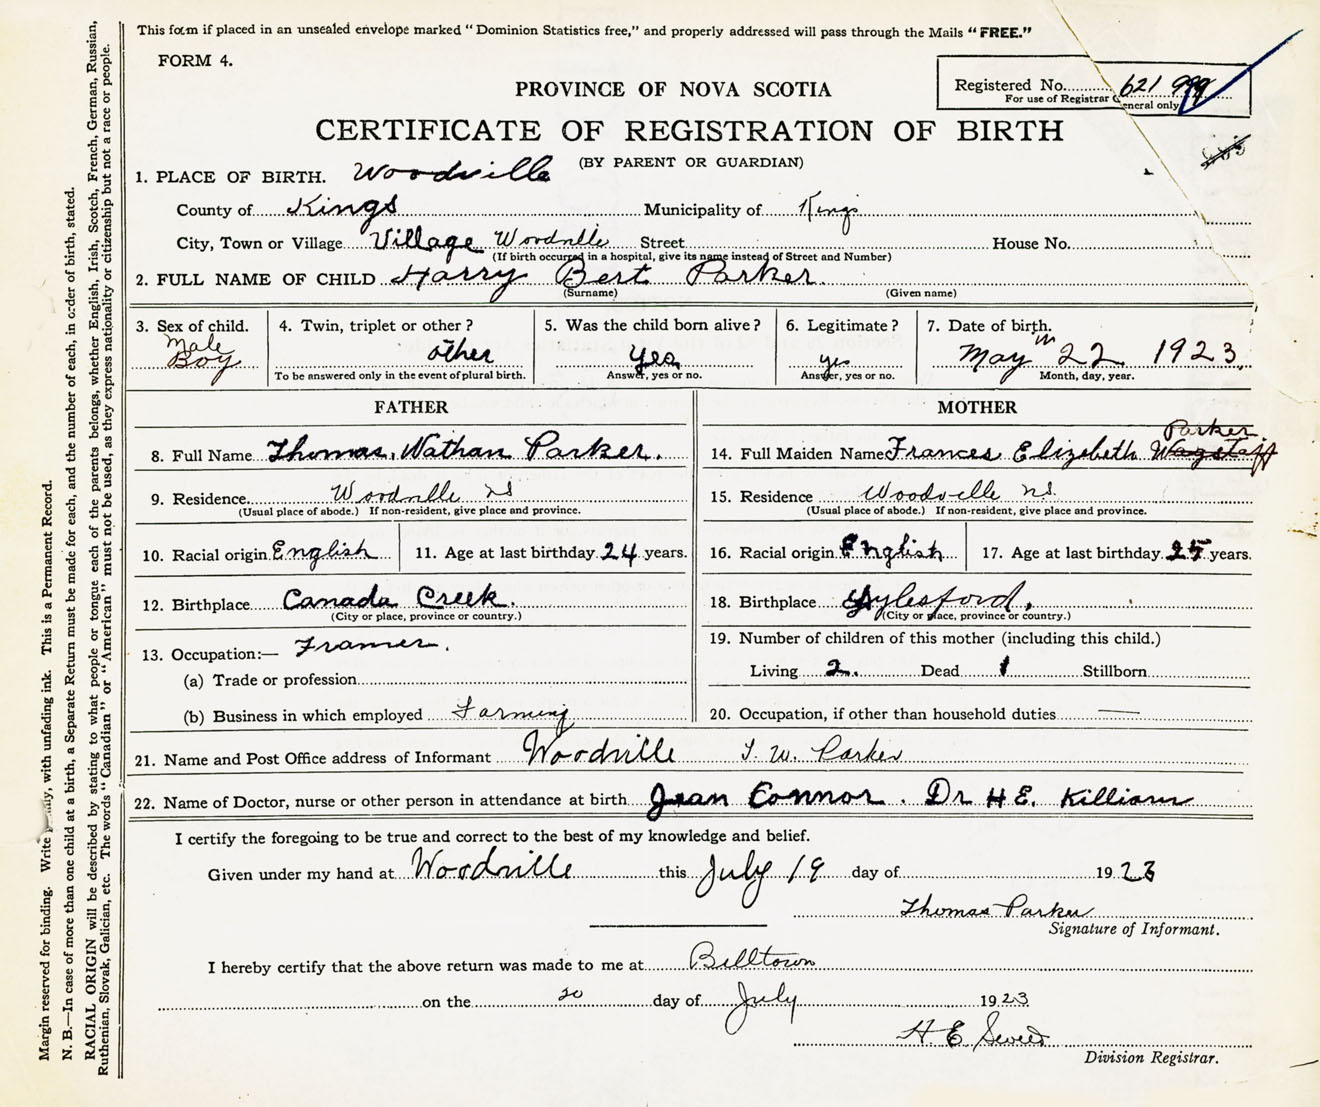 This form if placed in an unsealed envelope marked "Dominion Statistics free," and properly addressed will pass through the Mails "FREE."
FORM 4.
Registered No. 621 999
For use of Registrar General only
PROVINCE OF NOVA SCOTIA
CERTIFICATE OF REGISTRATION OF BIRTH
(BY PARENT OR GUARDIAN)
1. PLACE OF BIRTH. Woodville
County of Kings Municipality of Kings
City, Town or Village Village Woodville Street House No.
(If birth occurred in a hospital, give its name instead of Street and Number)
2. FULL NAME OF CHILD Harry Bert Parker.
(Surname) (Given name)
3. Sex of child. Male Boy
4. Twin, triplet or other? other
To be answered only in the event of plural birth.
5. Was the child born alive? Yes
Answer, yes or no.
6. Legitimate? yes
Answer, yes or no.
7. Date of birth. May 22 1923
Month, day, year.
FATHER
8. Full Name Thomas Wathan Parker.
9. Residence Woodville NS
(Usual place of abode.) If non-resident, give place and province.
10. Racial origin English 11. Age at last birthday 24 years.
12. Birthplace Canada Creek.
(City or place, province or country.)
13. Occupation:— Framer.
(a) Trade or profession
(b) Business in which employed Farming
MOTHER
14. Full Maiden Name Frances Elizabeth Wagstaff Parker
15. Residence Woodville NS.
(Usual place of abode.) If non-resident, give place and province.
16. Racial origin English 17. Age at last birthday 25 years.
18. Birthplace Aylesford.
(City or place, province or country.)
19. Number of children of this mother (including this child.)
Living 2. Dead 1 Stillborn
20. Occupation, if other than household duties —
21. Name and Post Office address of Informant Woodville T. W. Parker
22. Name of Doctor, nurse or other person in attendance at birth Jean Connor. Dr H E. Killiam
I certify the foregoing to be true and correct to the best of my knowledge and belief.
Given under my hand at Woodville this July 19 day of 1923
Thomas Parker
Signature of Informant.
I hereby certify that the above return was made to me at Billtown
on the 20 day of July 1923
H E
Division Registrar.
Margin reserved for binding. Write plainly, with unfading ink. This is a Permanent Record.
N. B.—In case of more than one child at a birth, a Separate Return must be made for each, and the number of each, in order of birth, stated.
RACIAL ORIGIN will be described by stating to what people or tongue each of the parents belongs, whether English, Irish, Scotch, French, German, Russian,
Ruthenian, Slovak, Galician, etc. The words "Canadian" or "American" must not be used, as they express nationality or citizenship but not a race or people.